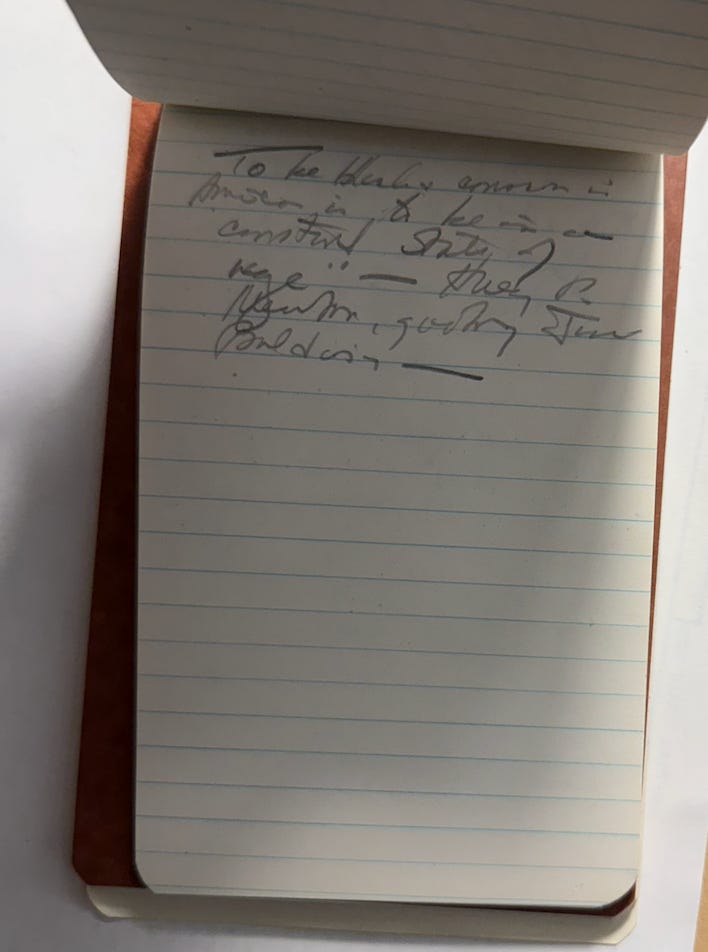 To be black & conscious in
America is to be in a
constant state of
rage" — Huey P.
Newton, quoting James
Baldwin —